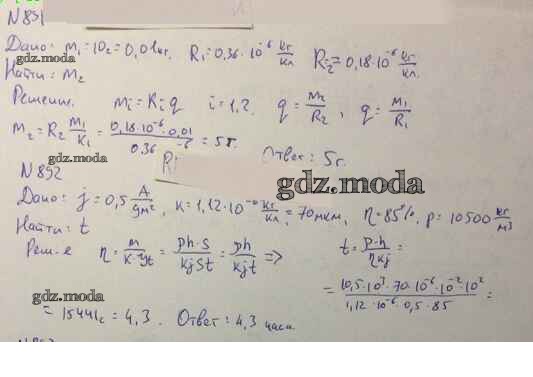 N 891
Дано: m₁ = 10г = 0,01кг. R₁ = 0,36·10⁻⁶ кг/кл R₂ = 0,18·10⁻⁶ кг/кл.
gdz.moda
Найти: m₂
Решение. mᵢ = Rᵢ q i = 1,2. q = m₂/R₂, q = m₁/R₁
m₂ = R₂ m₁/k₁ = 0,18·10⁻⁶·0,01/0,36 ⁻⁶ = 5г.
gdz.moda
Ответ: 5г.
gdz.moda
N 892
Дано: j = 0,5 А/дм², к = 1,12·10⁻⁶ кг/кл = 70мкм, η = 85%. ρ = 10500 кг/м³
Найти: t
Реш-е η = m/k·yt = ρh·S/kjSt = ρh/kjt => t = ρ·h/ηkj =
= 10,5·10³·70·10⁻⁶·10⁻²·10²/1,12·10⁻⁶·0,5·85 =
gdz.moda
= 15441с = 4,3. Ответ: 4,3 часа.